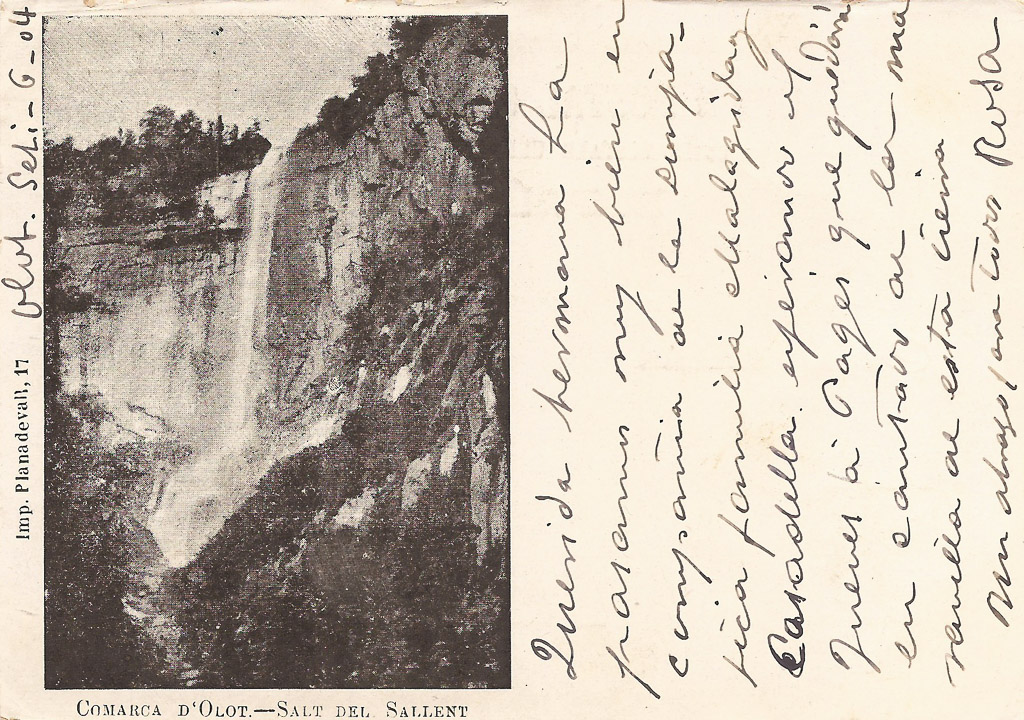 Olot. Set.-6-04
Imp. Planadevall, 17
COMARCA D'OLOT.—SALT DEL SALLENT
Querida hermana La
pasamos muy bien en
compañia de la simpa-
tica familia Malagrida y
Casadella. esperamos el
Jueves á Pages que quedará
en cantado de las ma
ravilla de esta tierra
Un abrazo para todos Rosa